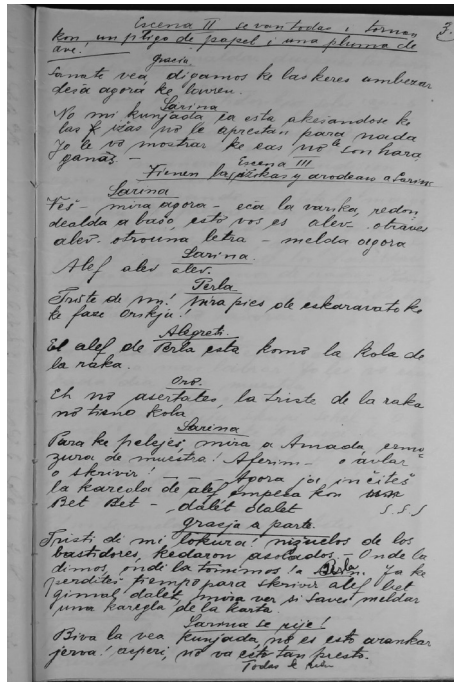 3.
Escena II se van todas i tornan
kon, un pligo de papel i una pluma de
ave.
Gracia
vea, digamos ke las keres ambezar
deja agora ke lavren.
Sarina
No mi kunjada ea esta akeiandose ke
las f izas no le aprestan para nada
Jo le vo mostrar ke eas no le son hara
ganas –
Escena III
Vienen las y arodean a Sarina
Sarina
Veš – mira agora – eca la varika, redon
dealda a baso, esto vos es alev. otra ves
alev. otro una letra – melda agora
Alef alev alev.
Sarina.
Perla
Triste de mi! Mira pies de eskaravato ke
ke faze Orikju!
Alegreti.
El alef de Perla esta komo la kola de
la raka.
Oro.
Eh no asertates, la triste de la raka
no tieno kola
Sarina
Para ke peležeš, mira a Amada, ermo-
zura de muestra! Aferim – o avlar
o skrivir. – – Agora ja incites
la kareola de alef empesa kon
Bet Bet – dalet dalet S.S.S
grasja a parte.
Tristi de mi lokura! nižuelos de los
bastidores, kedaron asolados. – Onde la
dimos, ondi la tomimos! a Perla. Ja ke
perdites tiempo para skrivir alef bet
gimal dalet, mira ver si saves meldar
una karegla de la karta.
Sarina se rije!
Biva la vea kunjada, no es esto arankar
jerva! asperi, no va esto tan presto.
Todas se